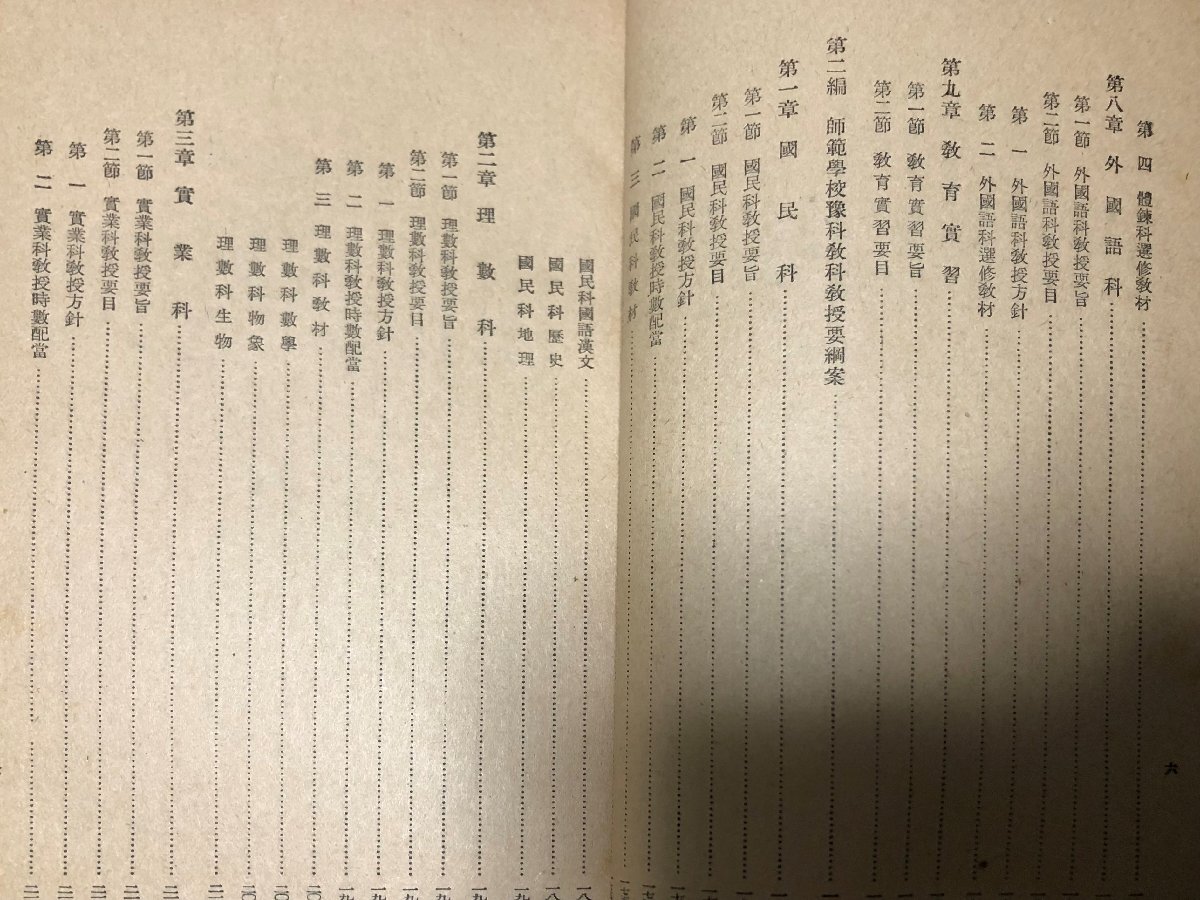 第四 體鍊科選修敎材
第八章 外國語科
第一節 外國語科敎授要旨
第二節 外國語科敎授要目
第一 外國語科敎授方針
第二 外國語科選修敎材
第九章 敎育實習
第一節 敎育實習要旨
第二節 敎育實習要目
第二編 師範學校豫科敎科敎授要綱案
第一章 國民科
第一節 國民科敎授要旨
第二節 國民科敎授要目
第一 國民科敎授方針
第二 國民科敎授時數配當
第三 國民科敎材
六
國民科國語漢文
國民科歷史
國民科地理
第二章 理數科
第一節 理數科敎授要旨
第二節 理數科敎授要目
第一 理數科敎授方針
第二 理數科敎授時數配當
第三 理數科敎材
理數科數學
理數科物象
理數科生物
第三章 實業科
第一節 實業科敎授要旨
第二節 實業科敎授要目
第一 實業科敎授方針
第二 實業科敎授時數配當